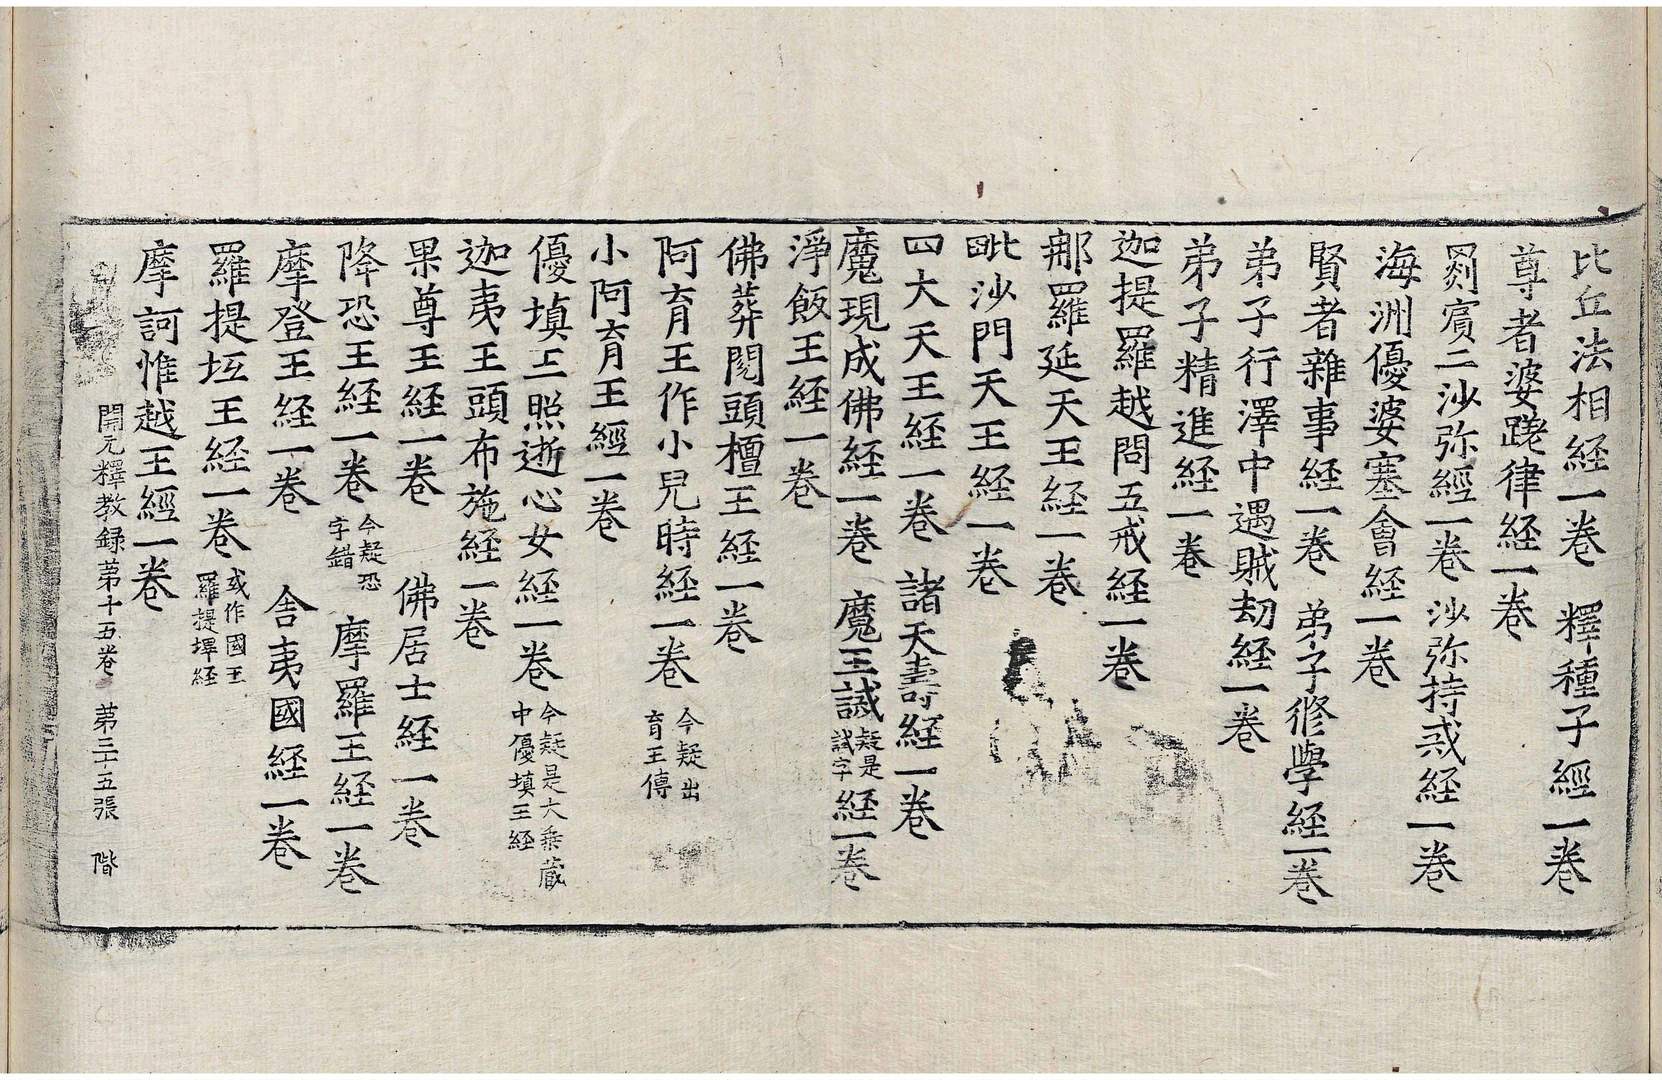 比丘法相経一卷　釋種子經一卷
尊者婆蹝律経一卷
罽賓二沙弥經一卷　沙弥持戒経一卷
海洲優婆塞會経一卷
賢者雜事経一卷　弟子修學経一卷
弟子行澤中遇賊劫経一卷
弟子精進経一卷
迦提羅越問五戒経一卷
那羅延天王経一卷
毗沙門天王経一卷
四大天王経一卷　諸天壽経一卷
魔現成佛経一卷　魔王誡疑是試字経一卷
淨飯王経一卷
佛葬閱頭檀王経一卷
阿育王作小兒時経一卷今疑出育王傳
小阿育王經一卷
優填王照逝心女経一卷今疑是大乘藏中優填王経
迦夷王頭布施経一卷
果尊王経一卷　佛居士経一卷
降恐王経一卷今疑恐字錯　摩羅王経一卷
摩登王経一卷　舎夷國経一卷
羅提坘王経一卷或作國王羅提墠経
摩訶惟越王經一卷
開元釋教録第十五卷　第三十五張　階